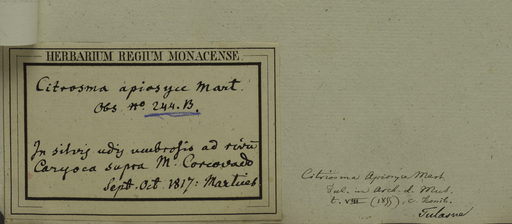 HERBARIUM REGIUM MONACENSE.
Citrosma apiosyce Mart.
Obs. no. 244. B.
In silvis udis umbrosis ad rivū
Caryoca supra M. Corcovado
Sept. Oct. 1817. Martius
Citriosma Apiosyce Mart
Tul. in Arch. d. Mus.
t. VIII (1855), c.
Tulasne